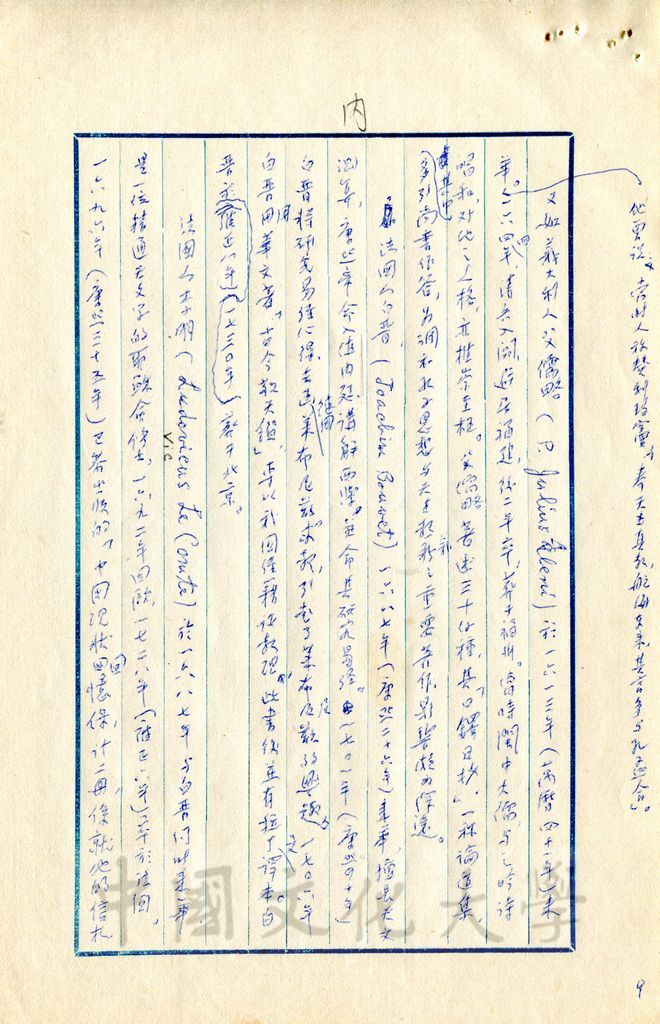 內
他曾說:當時人稱贊利瑪竇,奉天主真教,航海東來,其言多與孔孟合。
又如義大利人艾儒略。(P. Julius Aleni)於一六一三年(萬曆四十一年)來
華。一六四年,清兵入閩,避居福建,後二年卒。葬於福州。當時閩中大儒,與之吟詩
唱和,對他之人格,亦推崇至極。艾儒略著述三十餘種,其「口鐸日抄」,一稱論道集,
多引尚書作答,為調和孔子思想與天主教教之重要著作,影響頗為深遠。
法國人白晉,(Joachim Bouvet)一六八七年(康熙二十六年)來華,擅長天文
測算,康熙帝命入值內廷講解西學。並命其研究易經。一七〇一年(康熙四十年)
白晉將研究易經心得,去函萊布尼茲求教,引起了萊布尼茲的興趣,一七〇六年
白晉用華文著「古今敬天鑒」,率以我國經籍證教理,此書後並有拉丁譯本。白
晉於雍正八年(一七三〇年)葬於北京。
法國人李明(Ludovicus Le Comte)於一六八七年與白晉同時來華
Vic
是一位精通天文學的耶穌會修士,一六九二年回歐,一七二八年(雍正六年)卒於法國。
一六九六年(康熙三十五年)已著出版的「中國現狀回憶錄」,計二冊,係就他的信札
9
中國文化大學